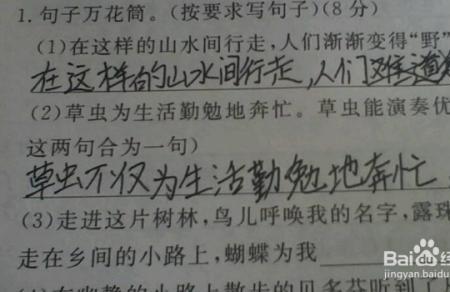 1.句子万花筒。(按要求写句子)(8分)
(1)在这样的山水间行走,人们渐渐变得“野”
在这样的山水间行走,人们难道
(2)草虫为生活勤勉地奔忙。草虫能演奏优
这两句合为一句)
草虫不仅为生活勤勉地奔忙,
(3)走进这片树林,鸟儿呼唤我的名字,露珠
走在乡间的小路上,蝴蝶为我
Bai du 经
jingyan.baidu.
在幽静的小路上散步的贝多芬听到了